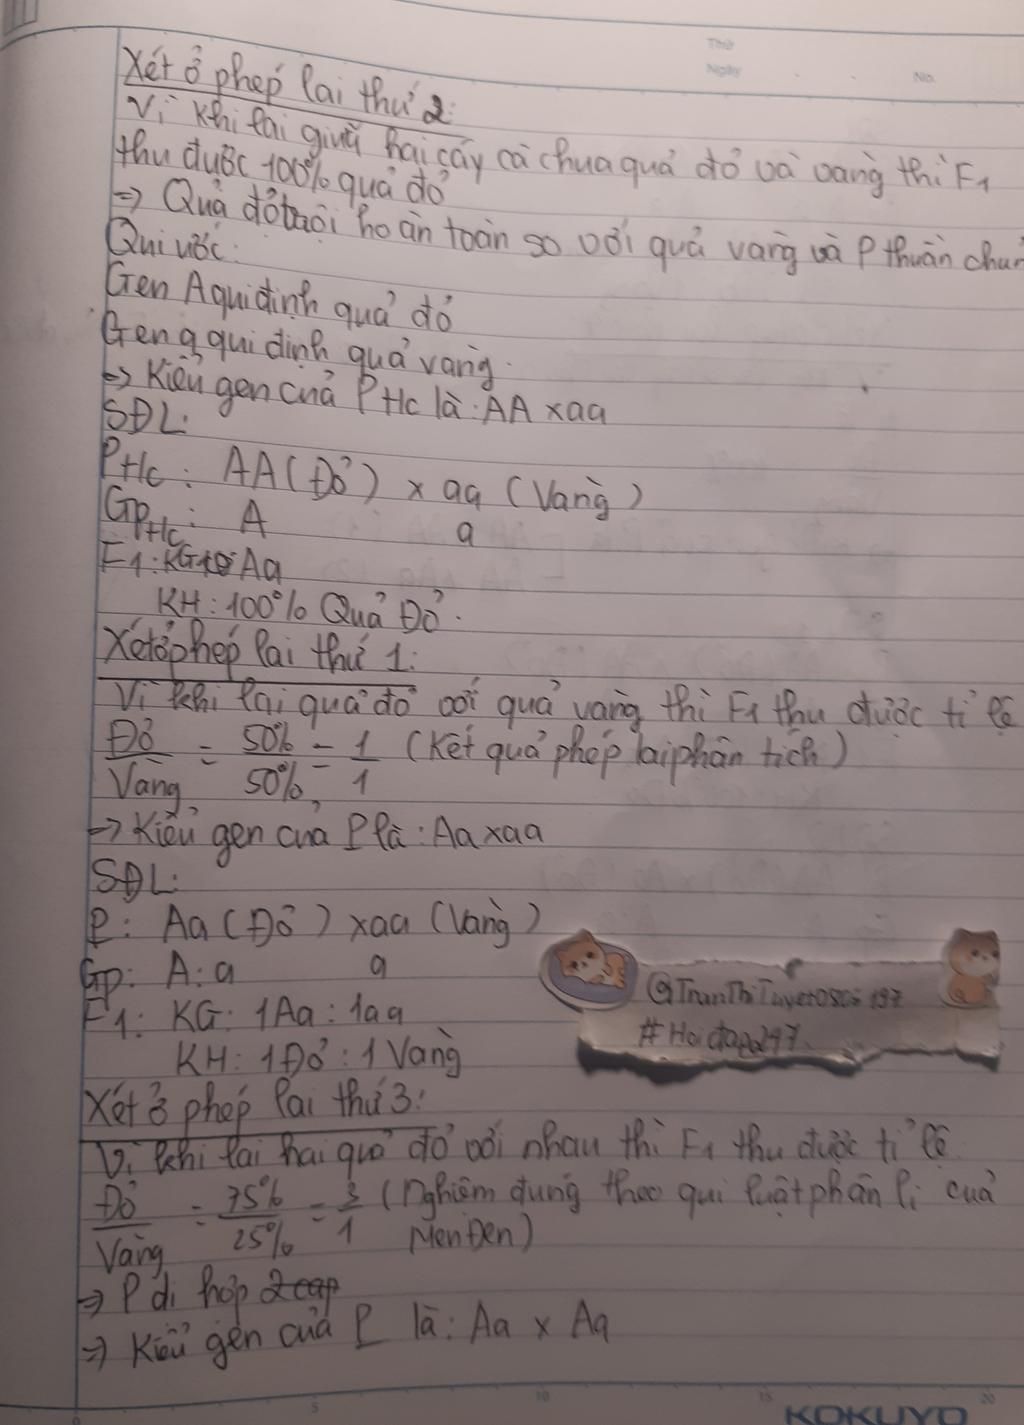 Thứ
Ngày
No.
Xét ở phép lai thứ 2:
Vì khi lai giữa hai cây cà chua quả đỏ và vàng thì F1
thu được 100% quả đỏ
=> Quả đỏ trội hoàn toàn so với quả vàng và P thuần chủn
Qui ước:
Gen A qui định quả đỏ
Gen a qui định quả vàng.
=> Kiểu gen của Pt/c là: AA x aa
SĐL:
Pt/c: AA (Đỏ) x aa (Vàng)
GPt/c: A a
F1: KG: Aa
KH: 100% Quả Đỏ.
Xét ở phép lai thứ 1:
Vì khi lai quả đỏ với quả vàng thì F1 thu được tỉ lệ
Đỏ/Vàng = 50%/50% = 1/1 (Kết quả phép lai phân tích)
=> Kiểu gen của P là: Aa x aa
SĐL:
P: Aa (Đỏ) x aa (Vàng)
Gp: A:a a
F1: KG: 1Aa : 1aa
KH: 1Đỏ : 1 Vàng
#Hoidap247
Xét ở phép lai thứ 3:
Vì khi lai hai quả đỏ với nhau thì F1 thu được tỉ lệ
Đỏ/Vàng = 75%/25% = 3/1 (Nghiệm đúng theo qui luật phân li của
MenĐen)
=> P dị hợp 2 cap
=> Kiểu gen của P là: Aa x Aa
5 10 15 20
KOKUYO